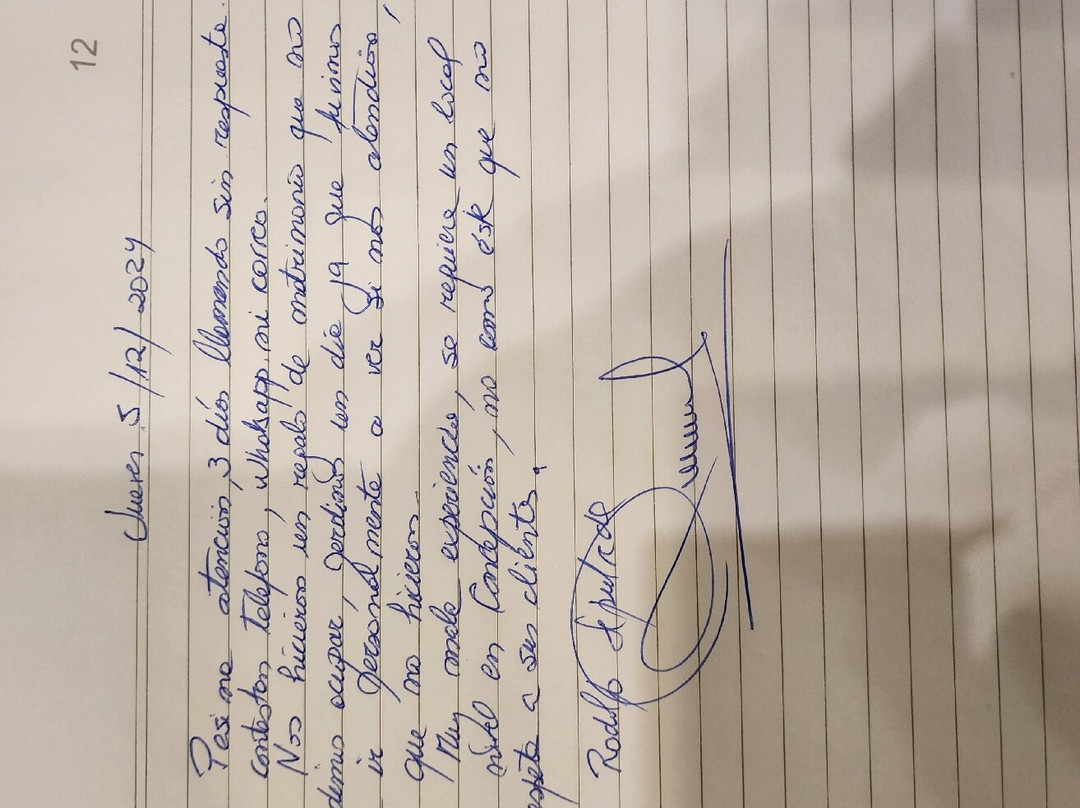 12
Jueves 5/12/2024
Pesima atención, 3 días llamando sin respuesta.
contestan telefono, whatsapp, ni correo.
Nos hicieron un regalo de matrimonio que no
dimos ocupar, perdimos un día ya que fuimos
ir personalmente a ver si nos atendían,
que no hicieron.
Muy mala experiencia, se requiere un local
nivel en Concepción, no como éste que no
espeta a sus clientes.
Rodolfo Sepulveda